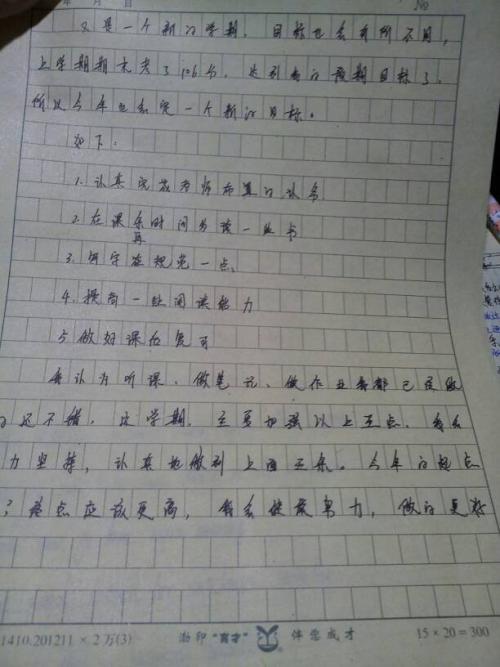 年 月 日 No
又是一个新的学期。目标也会有所不同,
上学期期末考了106分,达到我的预期目标了,
所以今年也会定一个新的目标。
如下:
1.认真完成老师布置的任务
2.在课余时间多读一些书
3.写字再规范一点、
4.提高一些阅读能力
5.做好课后复习
我认为听课、做笔记、做作业我都已经做
的还不错,这学期,主要加强以上五点,我会
力坚持,认真地做到上面五条。今年的起点
终点应该更高,我会使最努力,做的更好
1410.201211×2万(3)
渤印"育才" 伴您成才
15×20=300